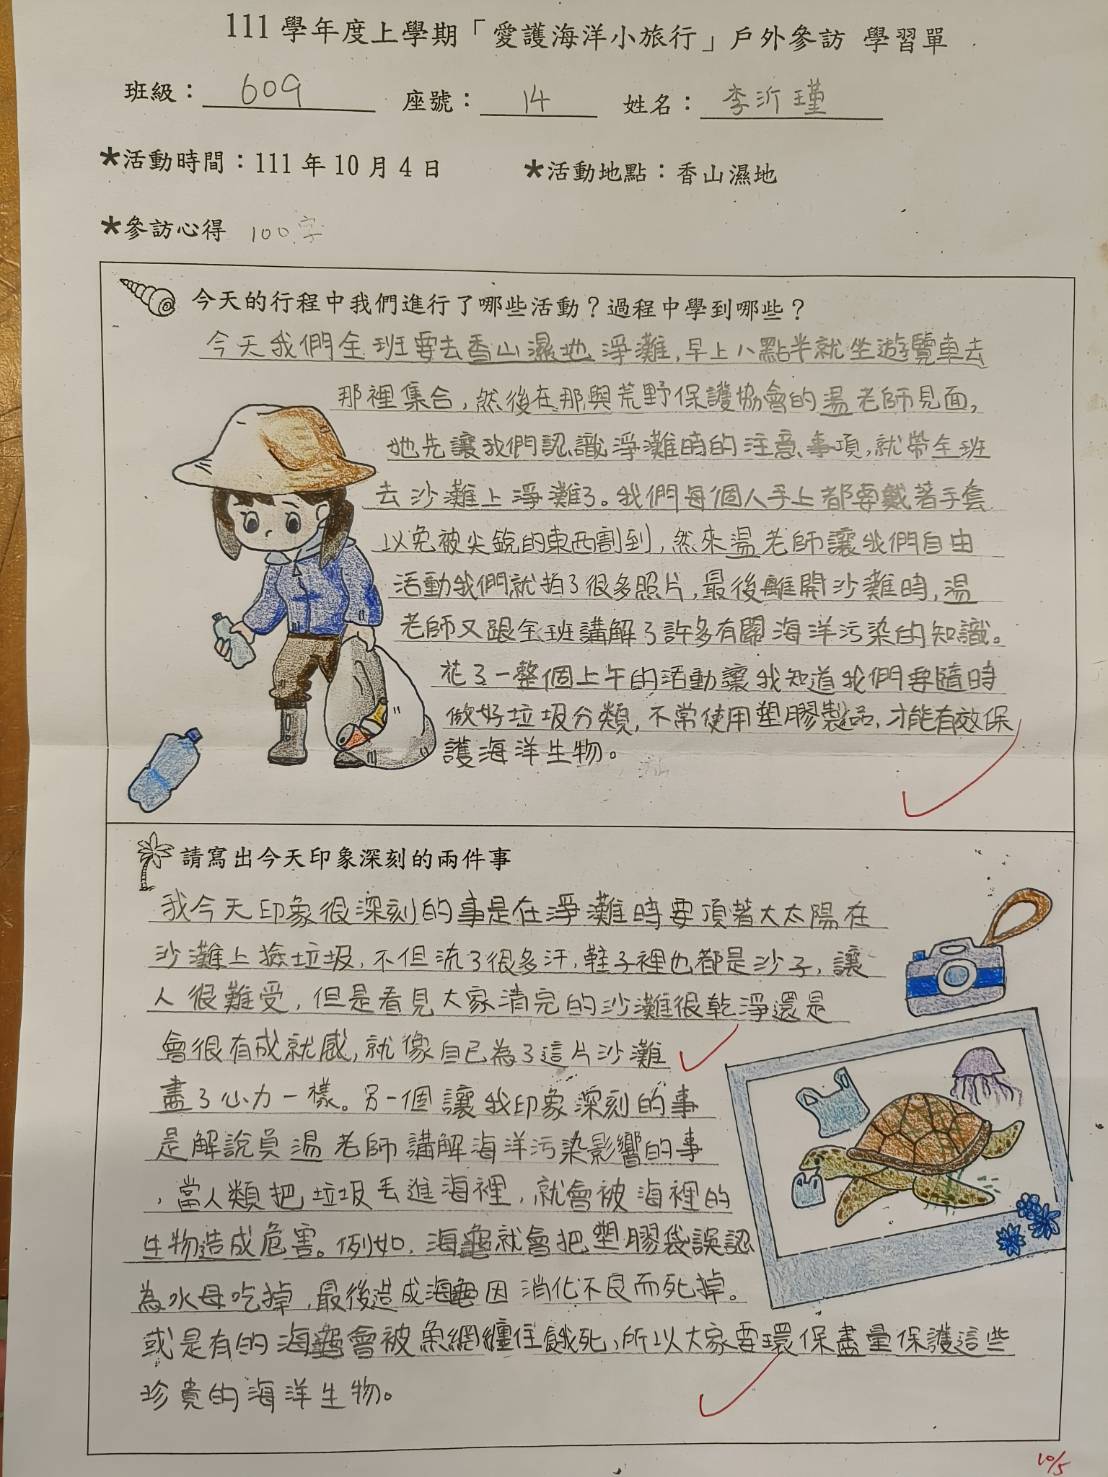 111 學年度上學期「愛護海洋小旅行」戶外參訪 學習單
班級：609 座號：14 姓名：李沂瑾
★活動時間：111 年 10 月 4 日 ★活動地點：香山濕地
★參訪心得 100字
今天的行程中我們進行了哪些活動？過程中學到哪些？
今天我們全班要去香山濕地淨灘,早上八點半就坐遊覽車去
那裡集合,然後在那與荒野保護協會的湯老師見面,
他先讓我們認識淨灘時的注意事項,就帶全班
去沙灘上淨灘了。我們每個人手上都要戴著手套
以免被尖銳的東西割到,然來湯老師讓我們自由
活動我們就拍了很多照片,最後離開沙灘時,溫
老師又跟全班講解了許多有關海洋污染的知識。
花了一整個上午的活動讓我知道我們要隨時
做好垃圾分類,不常使用塑膠製品,才能有效保
護海洋生物。
請寫出今天印象深刻的兩件事
我今天印象很深刻的事是在淨灘時要頂著大太陽在
沙灘上撿垃圾,不但流了很多汗,鞋子裡也都是沙子,讓
人很難受,但是看見大家清完的沙灘很乾淨還是
會很有成就感,就像自己為了這片沙灘
盡了心力一樣。另一個讓我印象深刻的事
是解說員湯老師講解海洋污染影響的事
,當人類把垃圾丟進海裡,就會被海裡的
生物造成危害。例如,海龜就會把塑膠袋誤認
為水母吃掉,最後造成海龜因消化不良而死掉。
或是有的海龜會被魚網纏住餓死,所以大家要環保盡量保護這些
珍貴的海洋生物。
10/5